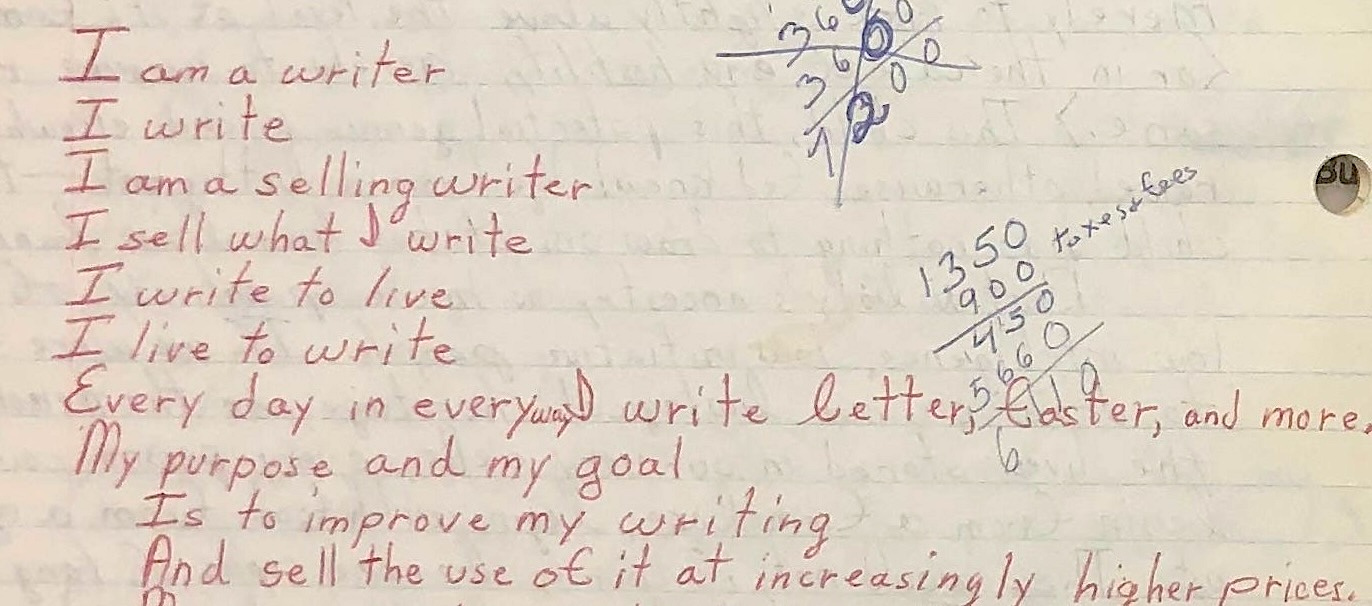 I am a writer
I write
I am a selling writer
I sell what I write
I write to live
I live to write
Every day in every way I write letter, faster, and more.
My purpose and my goal
Is to improve my writing
And sell the use of it at increasingly higher prices.
36
0
0
36
0
0
1
2
1350 taxes & fees
900
450
5660
6 10